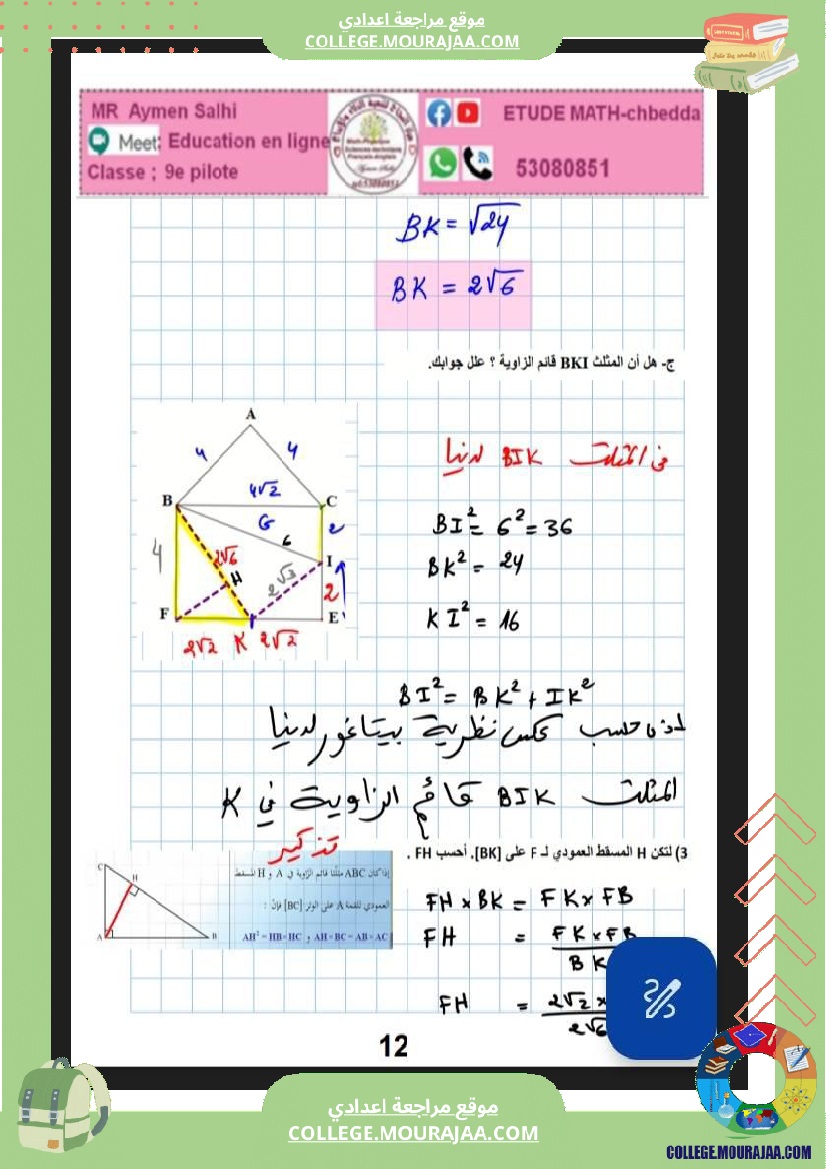 موقع مراجعة اعدادي
COLLEGE.MOURAJAA.COM
MR Aymen Salhi
Meet: Education en ligne
Classe ; 9e pilote
ETUDE MATH-chbedda
53080851
BK = √24
BK = 2√6
ج- هل أن المثلث BKI قائم الزاوية ؟ علل جوابك.
A
4
4
4√2
B
C
G
6
2
4
2√6
H
2√3
I
2
F
E
2√2
K
2√2
في المثلث BIK لدينا
BI² = 6² = 36
BK² = 24
KI² = 16
BI² = BK² + IK²
اذن حسب عكس نظرية بيتاغور لدينا
المثلث BIK قائم الزاوية في K
تذكير
3) لتكن H المسقط العمودي لـ F على [BK]. أحسب FH .
C
H
A
B
إذا كان ABC مثلثا قائم الزاوية في A و H المسقط
العمودي للقمة A على الوتر [BC] فإن :
AH² = HB×HC و AH×BC = AB×AC
FH × BK = FK × FB
FH = FK × FB
BK
FH = 2√2 ×
2√6
12
موقع مراجعة اعدادي
COLLEGE.MOURAJAA.COM
COLLEGE.MOURAJAA.COM